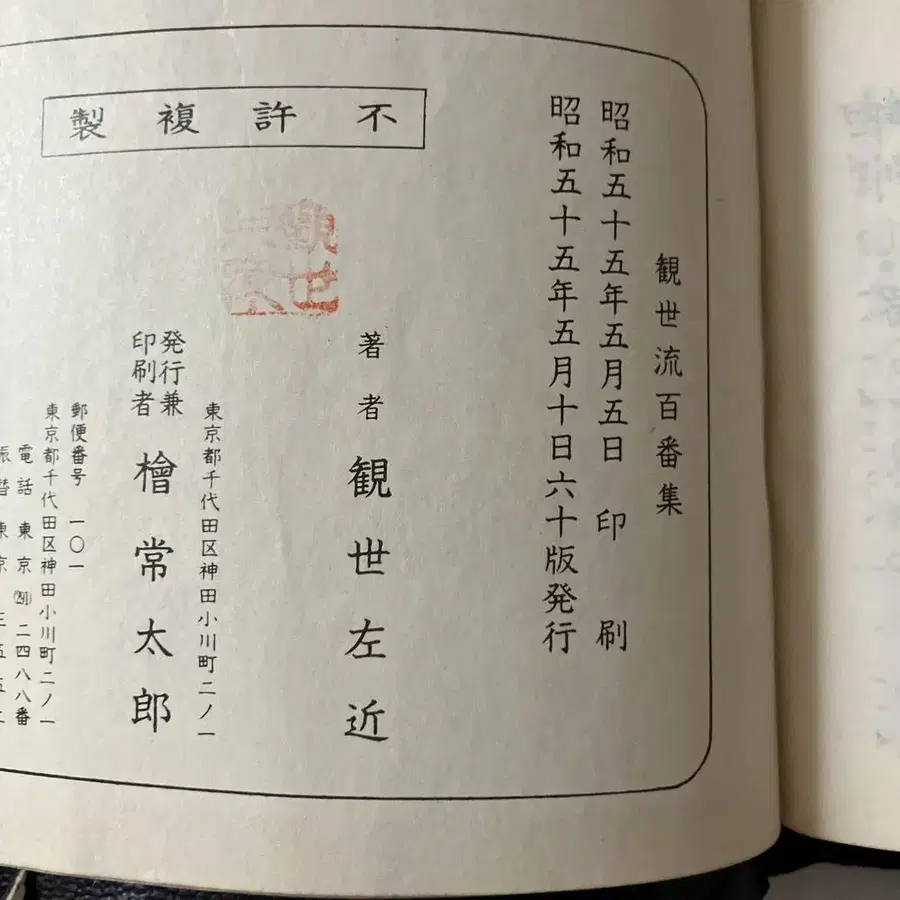 観世流百番集
昭和五十五年五月五日 印刷
昭和五十五年五月十日六十版発行
不許複製
著者 観世左近
東京都千代田区神田小川町二ノ一
発行兼
印刷者 檜常太郎
郵便番号 一〇一
東京都千代田区神田小川町二ノ一
電話東京(291)二四八八番